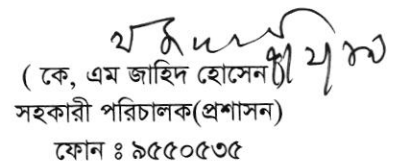 ( কে, এম জাহিদ হোসেন )
সহকারী পরিচালক(প্রশাসন)
ফোন ঃ ৯৫৫০৫৩৫